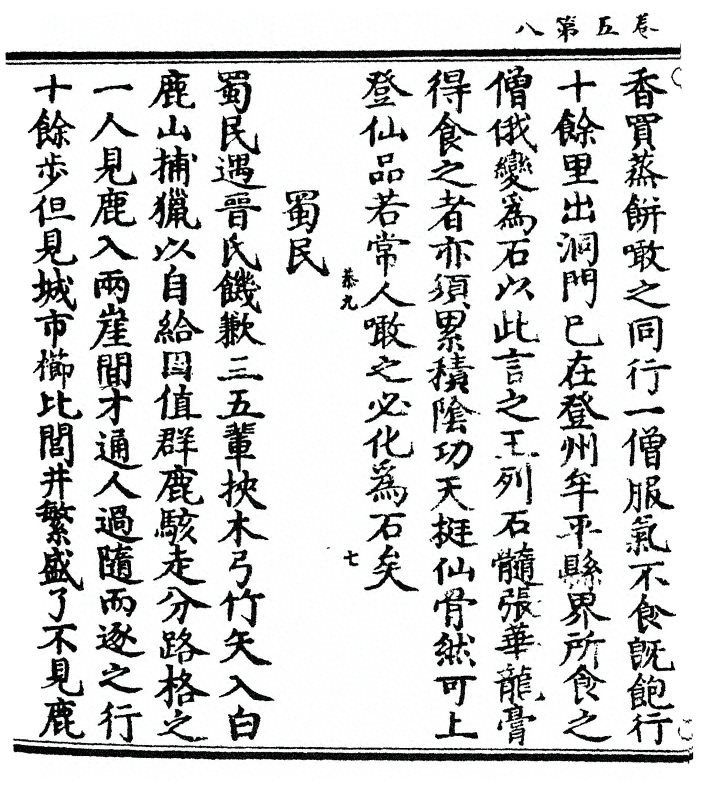 卷五第八
香買蒸餅噉之同行一僧服氣不食旣飽行
十餘里出洞門已在登州牟平縣界所食之
僧俄變爲石以此言之王列石髓張華龍膏
得食之者亦須累積陰功天挺仙骨然可上
登仙品若常人噉之必化爲石矣
蜀民
恭九
七
蜀民遇晉氏饑歉三五輩挾木弓竹矢入白
鹿山捕獵以自給因值群鹿駭走分路格之
一人見鹿入兩崖間才通人過隨而逐之行
十餘步但見城市櫛比閭井繁盛了不見鹿